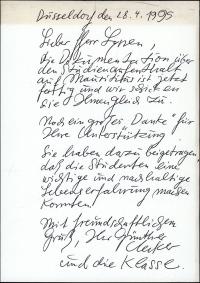 Düsseldorf den 28.4.1995
Lieber Herr
die Dokumentation über
den Studienaufenthalt
auf Mauritius ist jetzt
fertig und wir schicken
sie Ihnen gleich zu.
Noch ein großes "Danke" für
Ihre Unterstützung.
Sie haben dazu beigetragen
daß die Studenten eine
wichtige und nachhaltige
Lebenserfahrung machen
konnten!
Mit freundschaftlichem
Gruß, Ihr Günther
Uecker
und die Klasse.